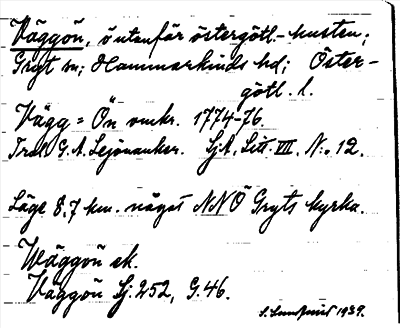 Väggön, ö utanför östergötl.-kusten;
Gryt sn; Hammarkinds hd; Öster-
götl. l.
Vägg = Ön omkr. 1774-76.
Trol. G. A. Lejonanker. SjA, Litt. VIII, N:o 12.
Läge 8,7 km. något NNÖ Gryts kyrka.
Wäggön ek.
Väggön Sj. 252, G. 46.
S. Lundqvist 1939.